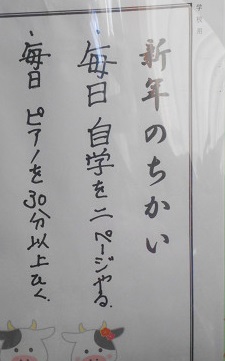 学校用
新年のちかい
・毎日 自学を二ページやる。
・毎日 ピアノを30分以上ひく。